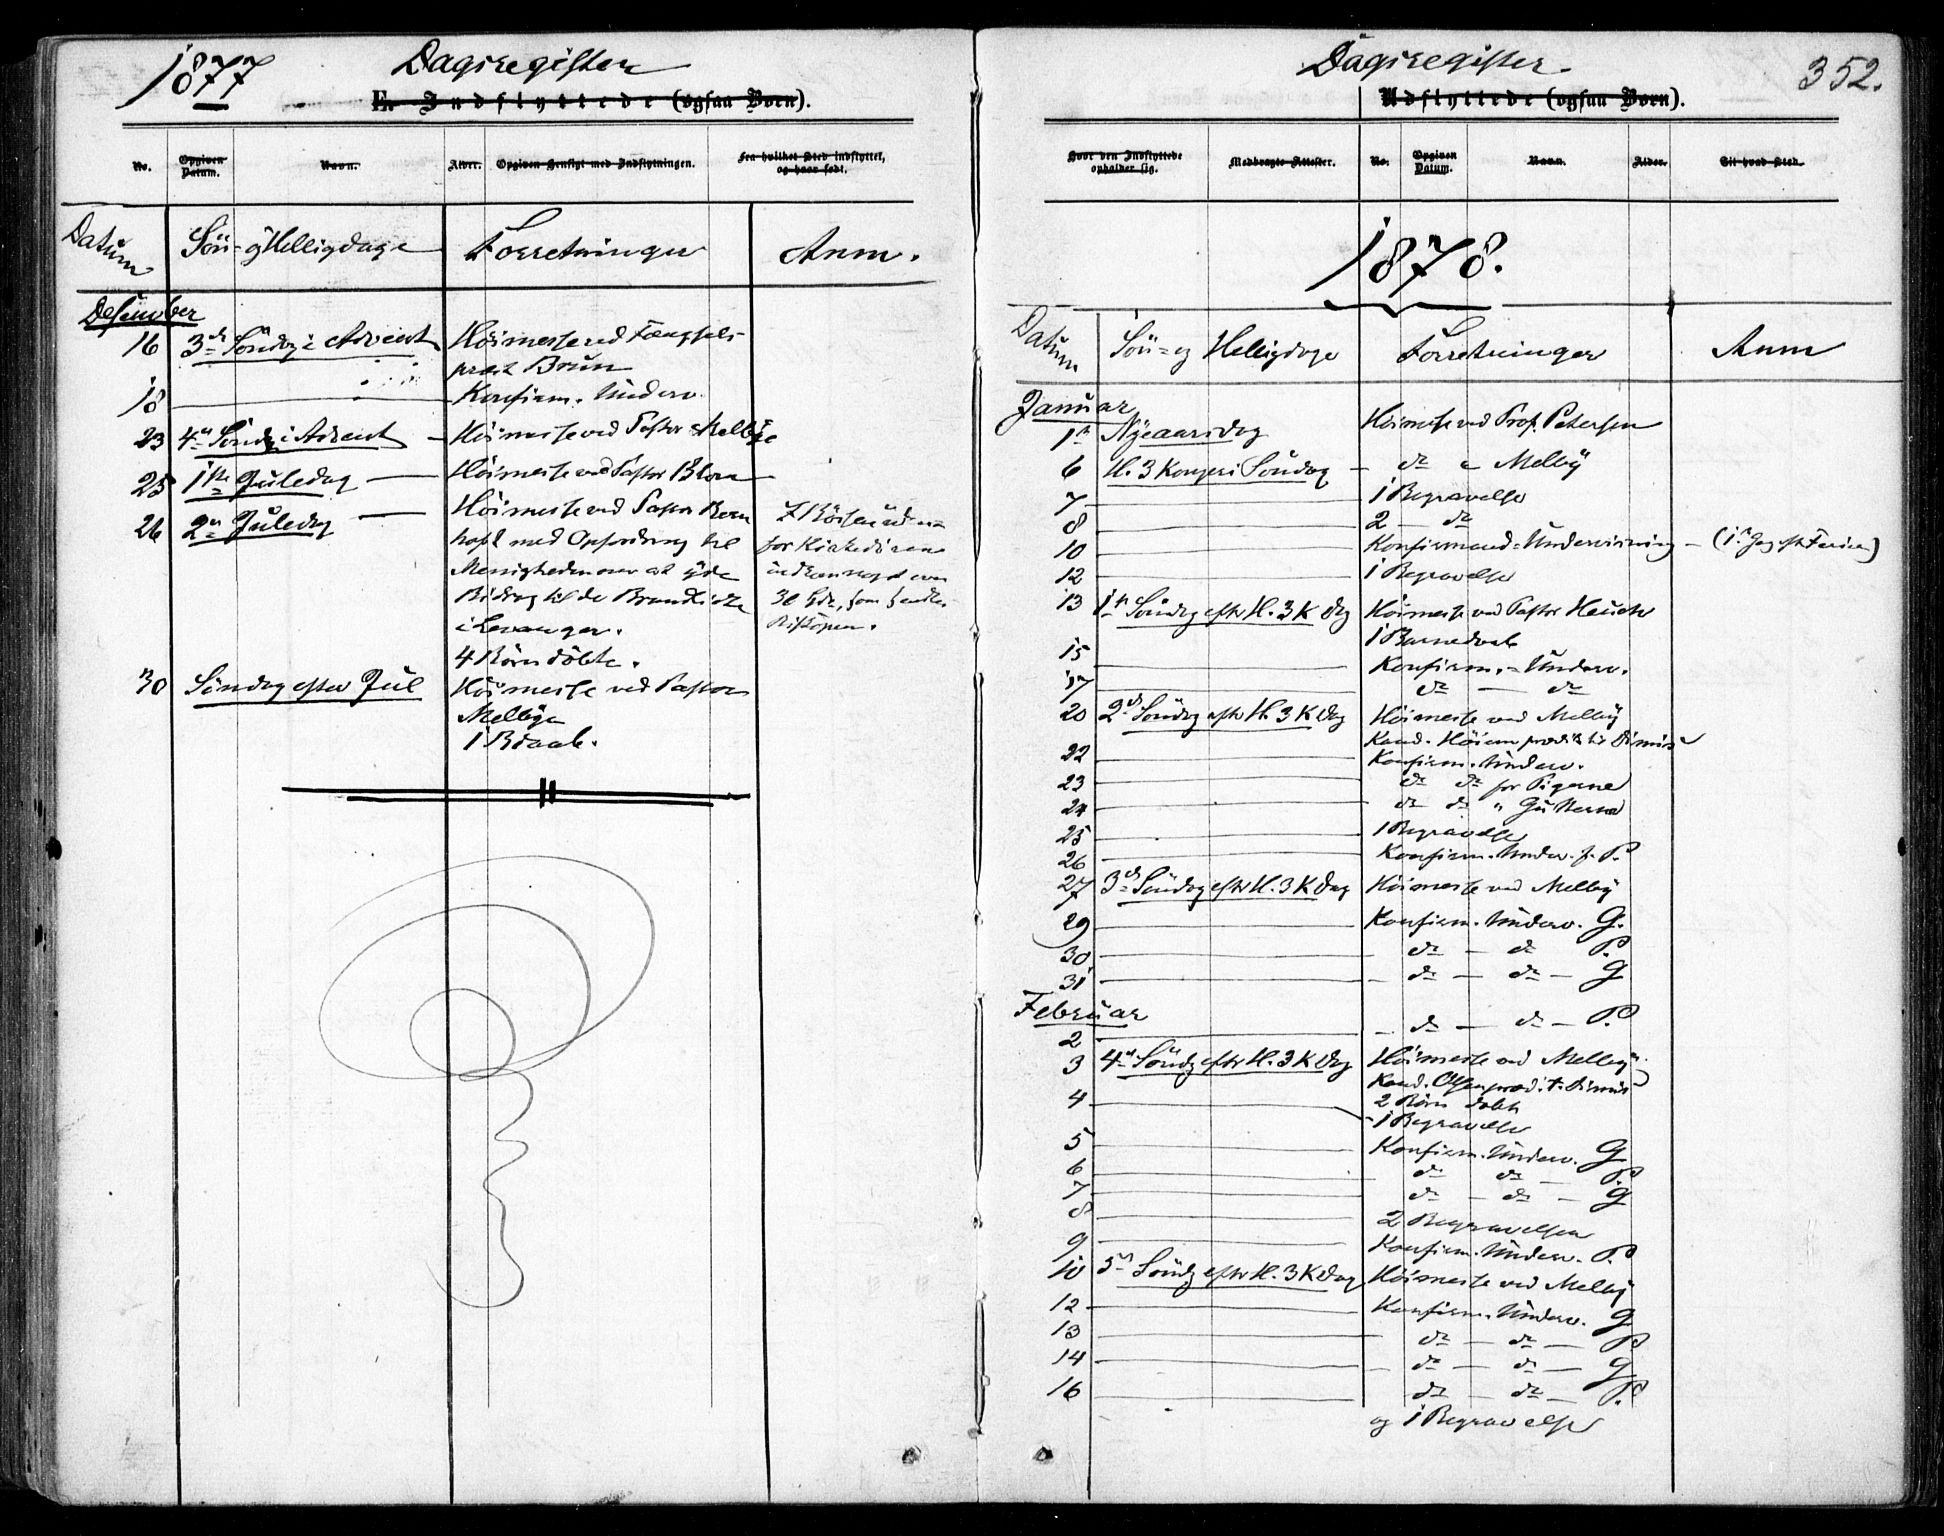 1877
Dagsregister
E. Indflyttede (ogsaa Børn).
No. Opgiven Datum. Navn. Alder. Opgiven Hensigt med Indflytningen. Fra hvilket Sted indflyttet, og hvor født.
Datum Søn- og Helligdage Forretninger Anm.
Desember
16 3die Søndag i Advent Høimesse ved Fængsels-
præst Brun
18 Konfirm. Underv.
23 4de Søndg i Advent Høimesse ved Pastor Melbye
25 1ste Juledag Høimesse ved Pastor Brun
26 2den Juledag Høimesse ved Pastor
med Opfordring til
Menigheden om at yde
Bidrag til de Brandlidte
i Levanger.
for Kirkedørene
indkom
30
4 Børn døbte.
30 Søndag efter Jul Høimesse ved Pastor
Melbye
1 Bdaab.
Dagsregister.
352.
Udflyttede (ogsaa Børn).
Hvor den Indflyttede opholder sig. Medbragte Attester. No. Opgiven Datum. Navn. Alder. Til hvad Sted.
1878.
Datum Søn- og Helligdage Forretninger Anm
Januar
1st Nyeaarsdag Høimesse ved Prof. Petersen
6 H. 3 Kongers Søndag do " Melby
7 1 Begravelse
8 2 — do
10 Konfirmand-Undervisning – (1st Dag eft Ferien)
12 1 Begravelse
13 1st Søndag efter H. 3 K dag Høimesse ved Pastor Heuch
1 Barnedaab
15 Konfirm.-Underv.
17 do — do
20 2den Søndag eftr H. 3 K dag Høimesse ved Melby
Kand. Høiem præd. til Dimis
22 Konfirm. Underv.
23 do do for Pigerne
24 do do " Gutterne
25 1 Begravelse
26 Konfirm. Underv. f. P.
27 3die Søndag eftr H. 3 K dag Høimesse ved Melby
29 Konfirm. Underv. G.
30 do — do P.
31 – do — do – G
Februar
2 – do — do – P.
3 4de Søndg eftr H. 3 K dag Høimesse ved Melbye
Kand. Olsen præd. t. Dimis
2 Børn døbt
4 1 Begravelse
5 Konfirm. Underv. G
6 do do — P.
7 do — do — G
8 2 Begravelser
9 Konfirm. Underv. P.
10 5te Søndg eftr H. 3 K dag Høimesse ved Melby
12 Konfirm. Underv. G
13 do — do — P
14 – do — do — G
16 do — do — P.
og 1 Begravelse